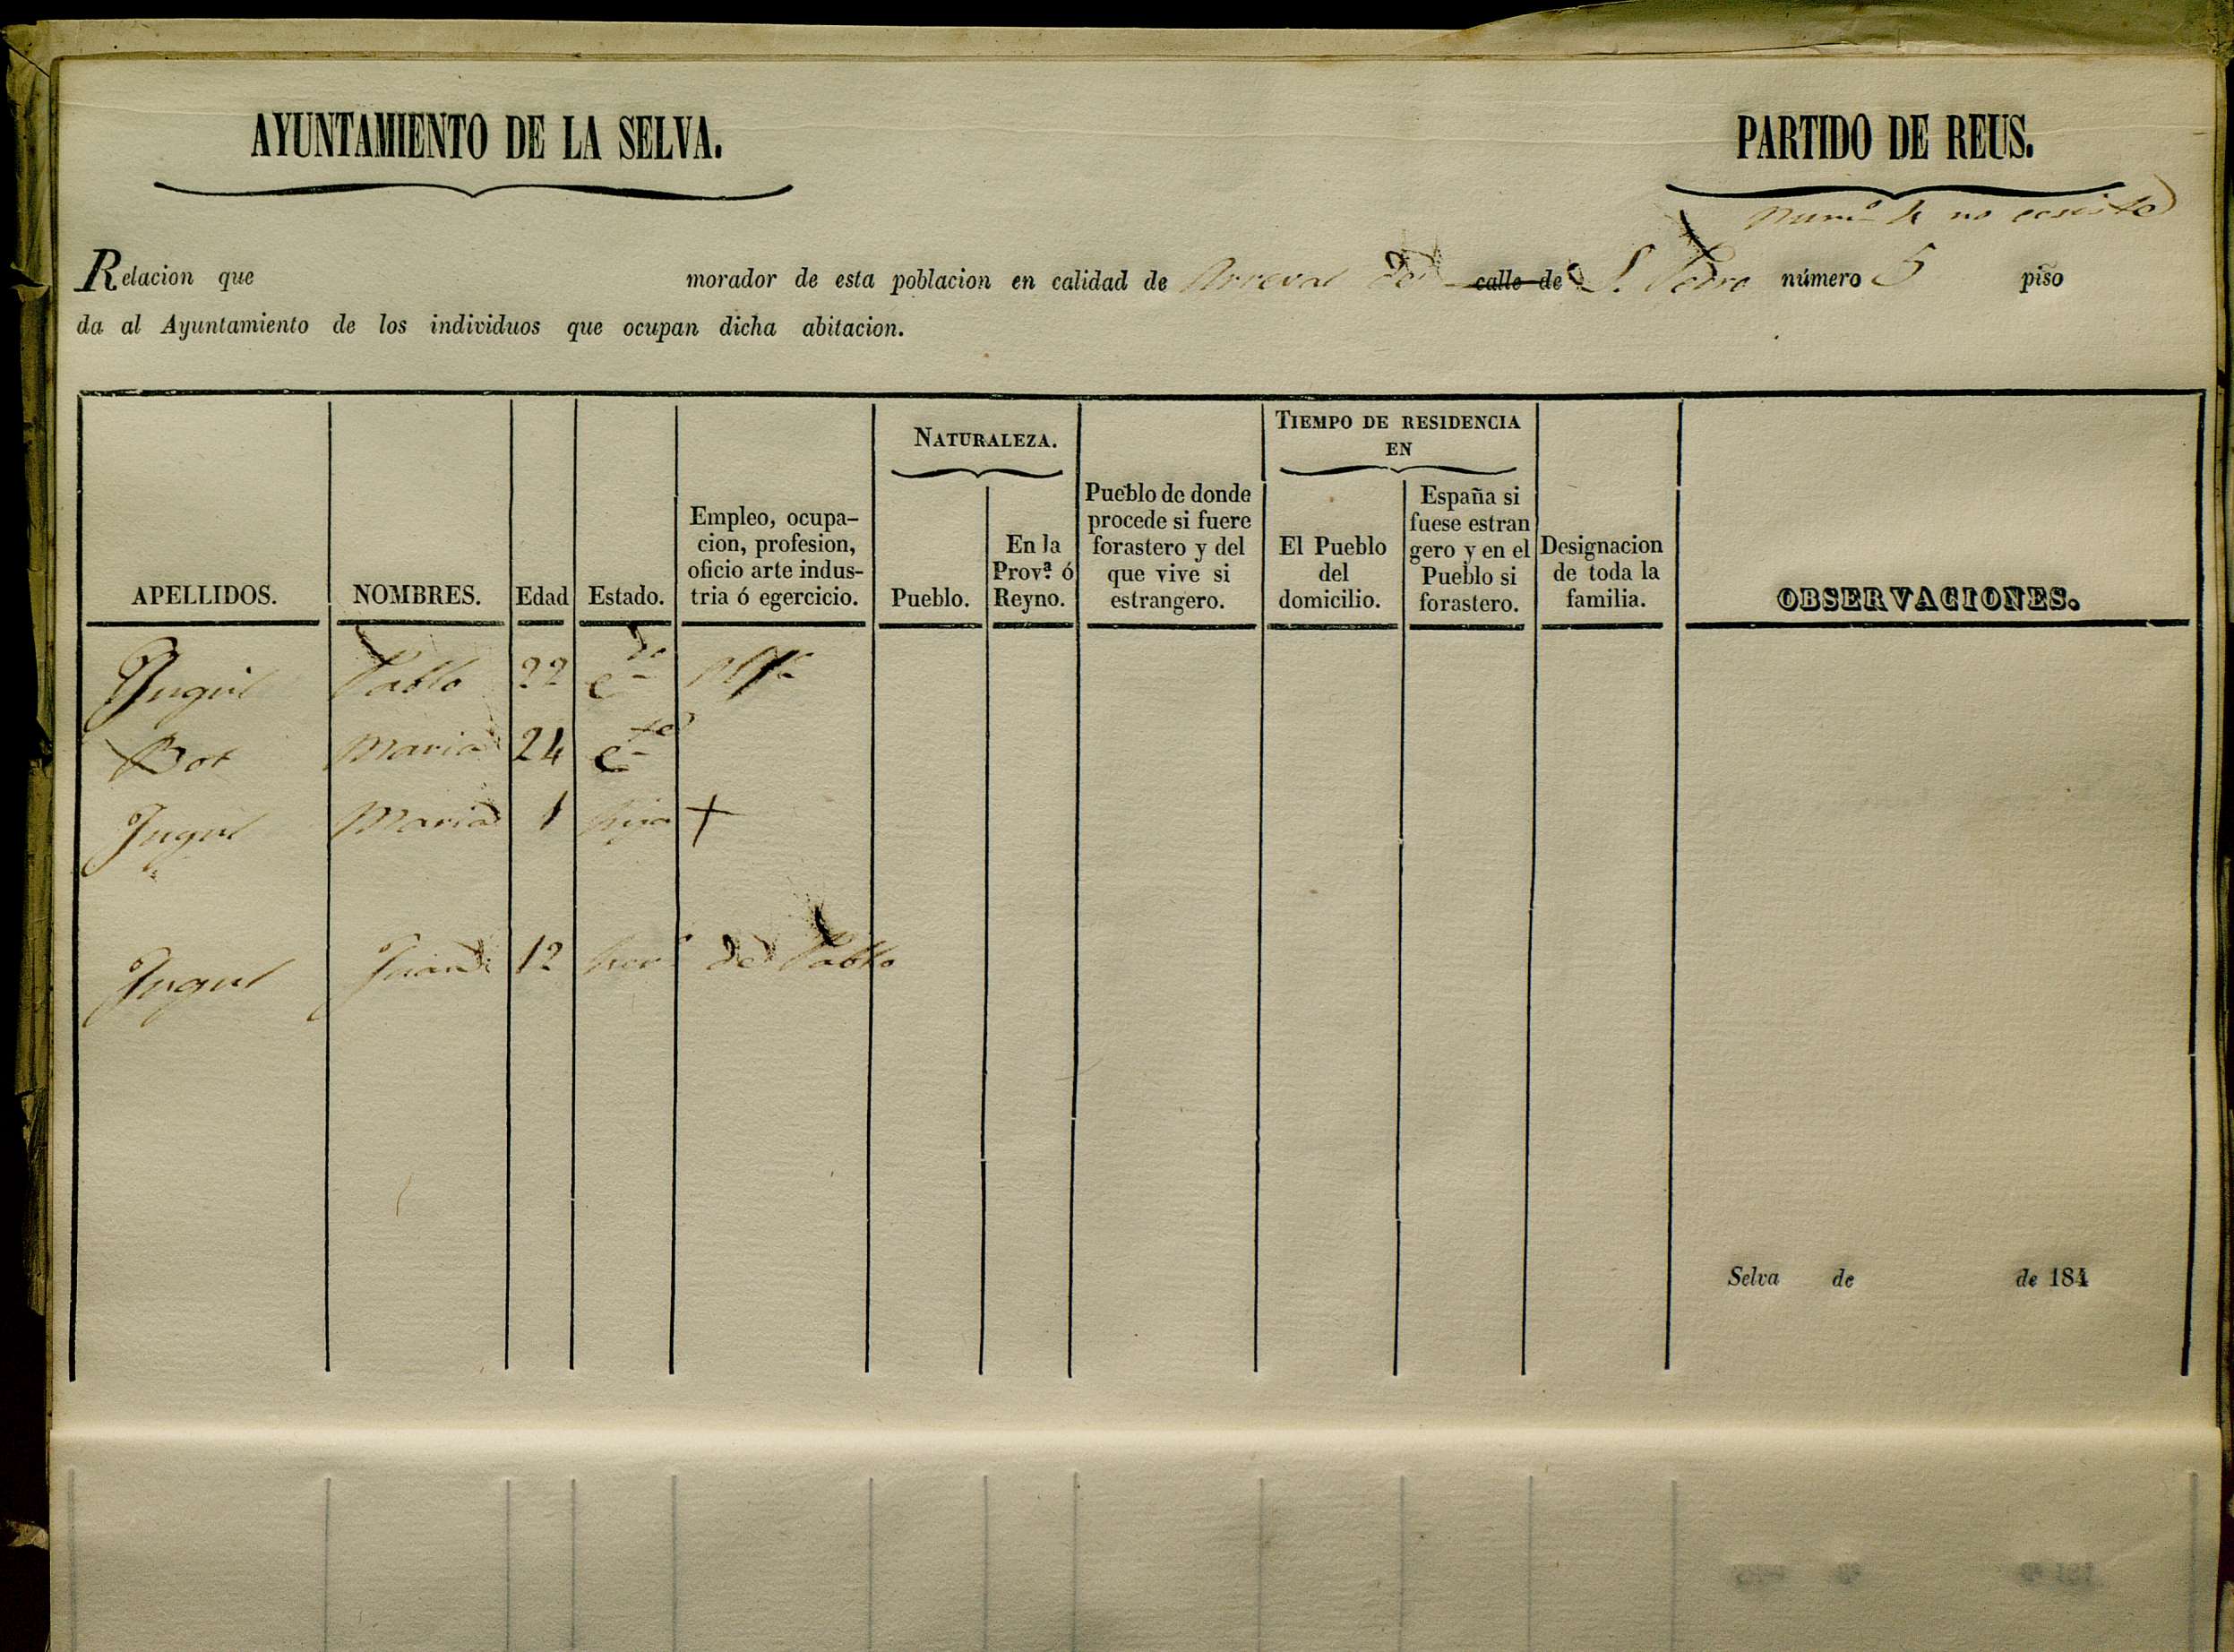 AYUNTAMIENTO DE LA SELVA.
PARTIDO DE REUS.
Num.º 4 no ecsiste
Relacion que morador de esta poblacion en calidad de Arreval de calle de S. Pedro número 5 piso
da al Ayuntamiento de los individuos que ocupan dicha abitacion.
APELLIDOS.
NOMBRES.
Edad
Estado.
Empleo, ocupa-
cion, profesion,
oficio arte indus-
tria ó egercicio.
NATURALEZA.
Pueblo.
En la
Prov.ª ó
Reyno.
Pueblo de donde
procede si fuere
forastero y del
que vive si
estrangero.
TIEMPO DE RESIDENCIA
EN
El Pueblo
del
domicilio.
España si
fuese estran
gero y en el
Pueblo si
forastero.
Designacion
de toda la
familia.
OBSERVACIONES.
Pablo 22 c.do
Bot Maria 24 c.
Maria 1 hija +
Juan 12 her.º de Pablo
Selva de de 184